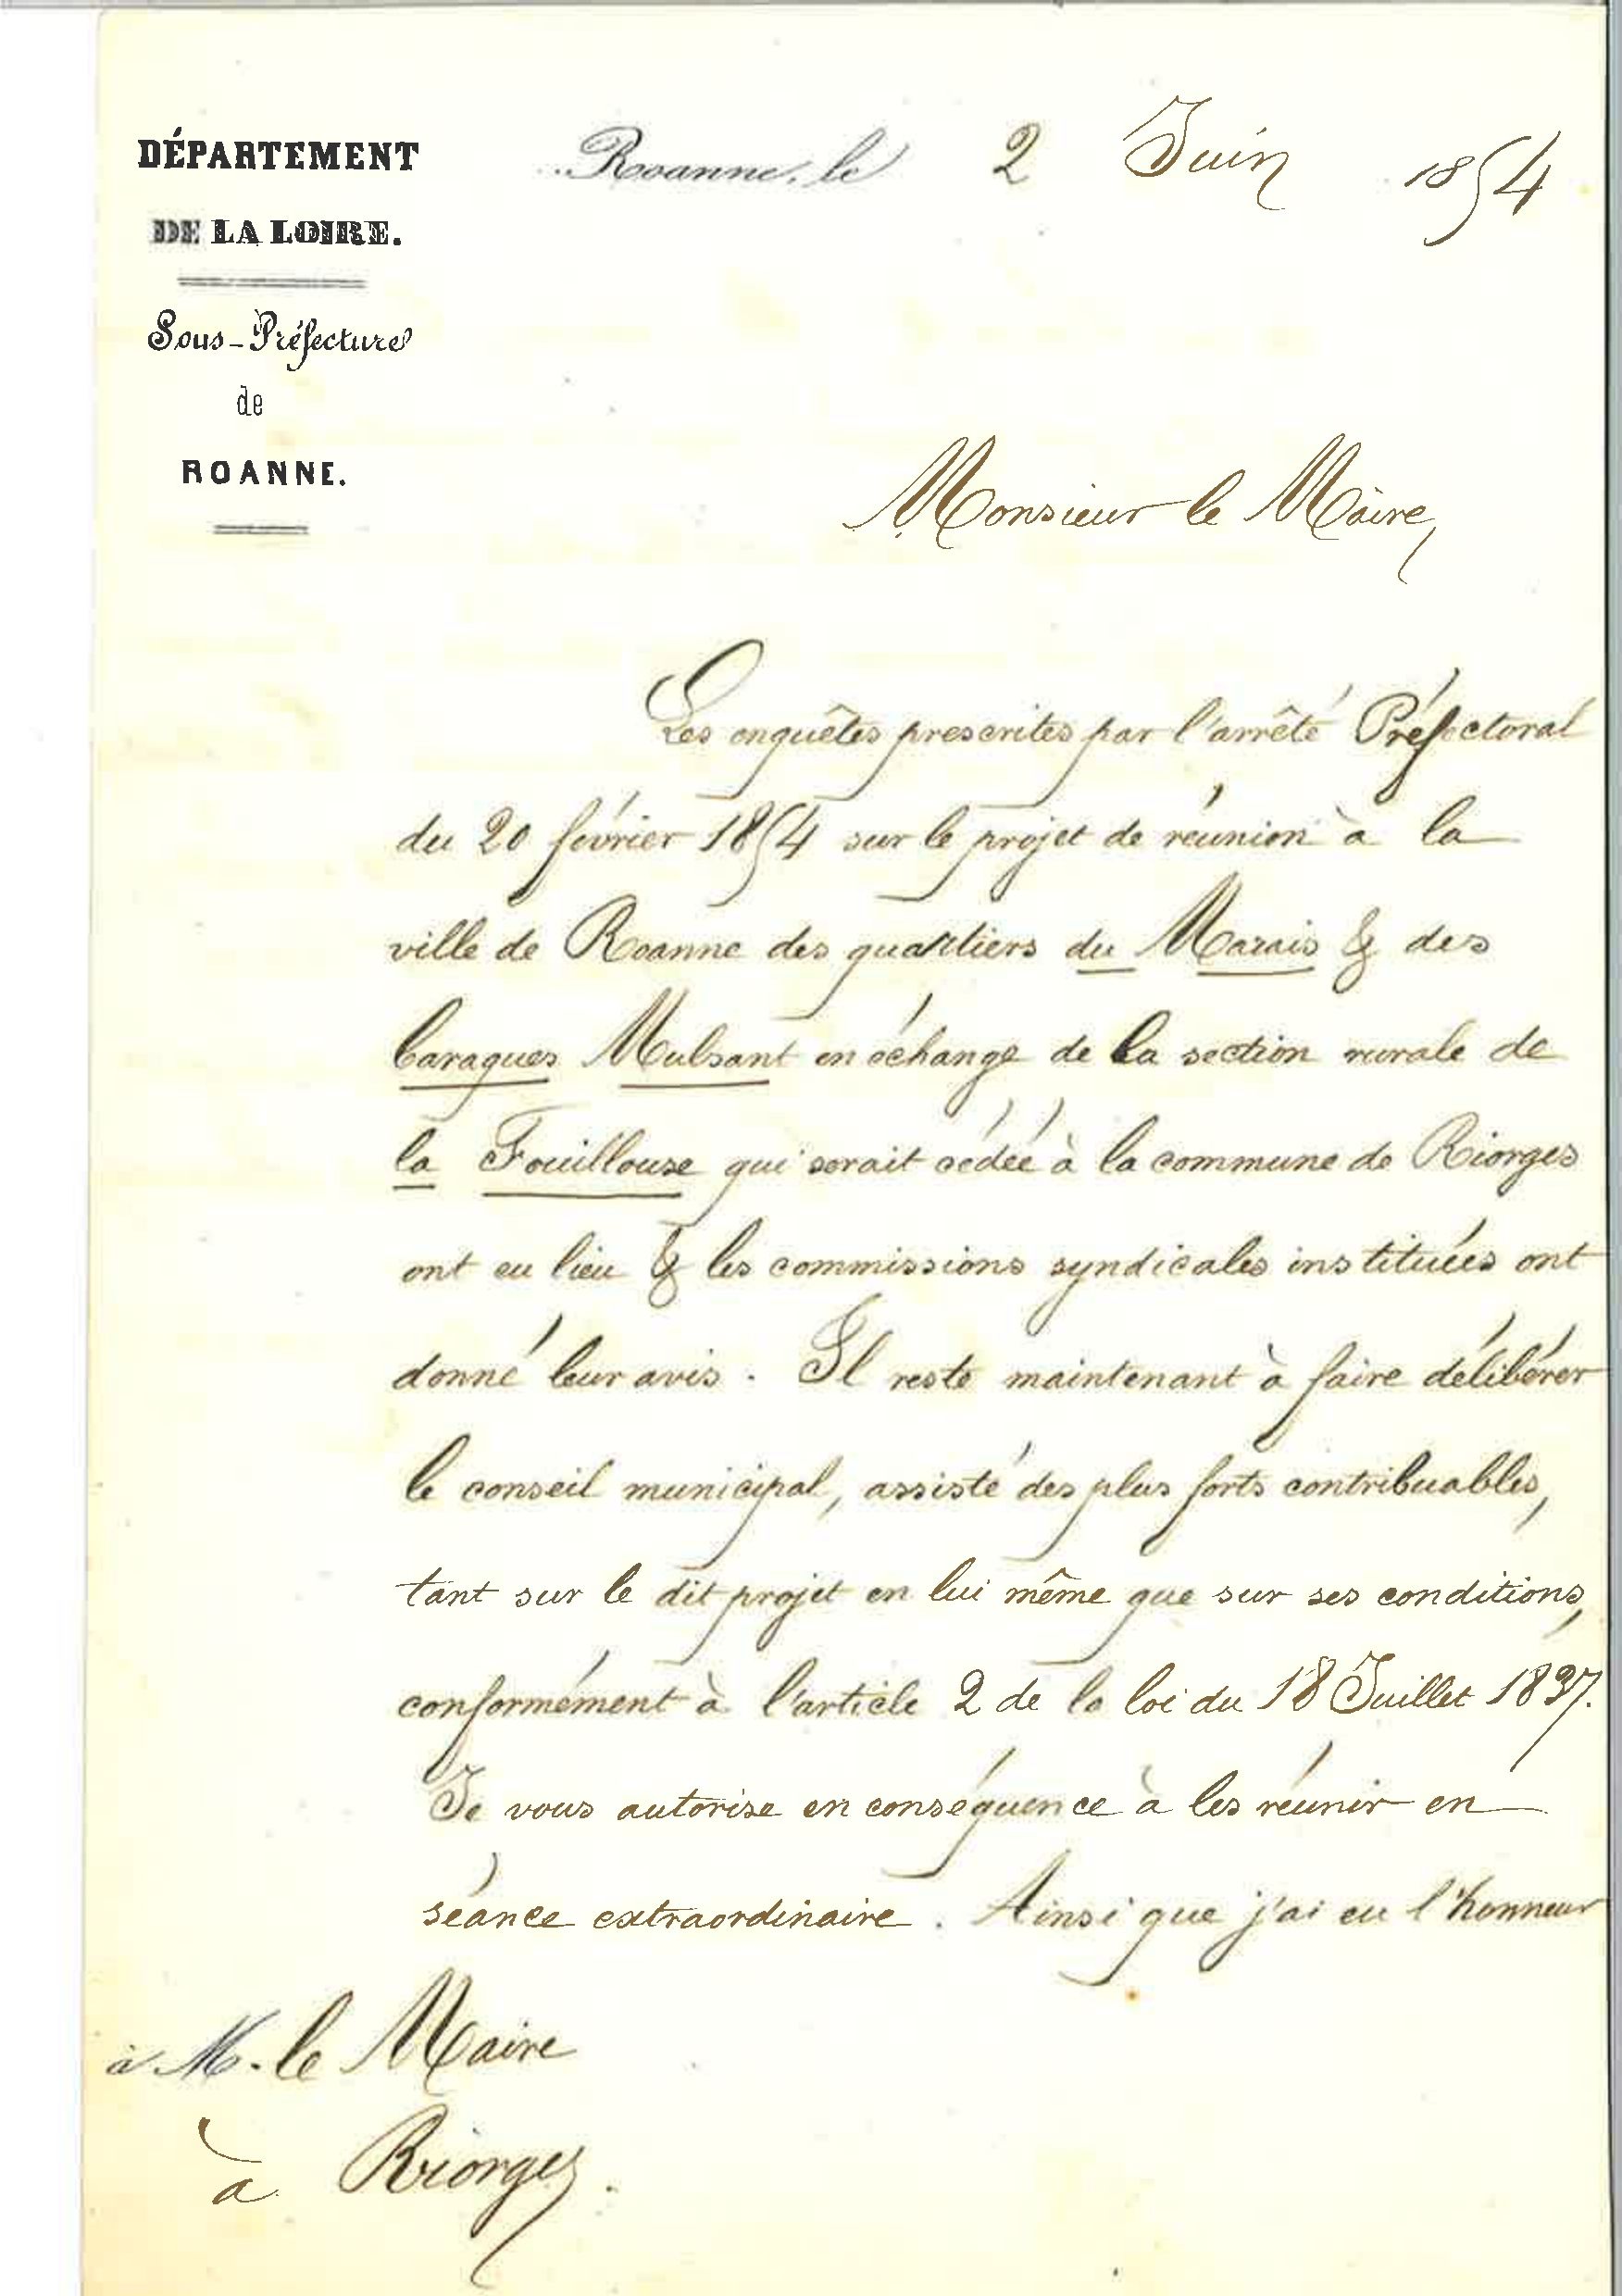 DÉPARTEMENT
DE LA LOIRE.
Sous-Préfecture
de
ROANNE.
Roanne, le 2 Juin 1854
Monsieur le Maire,
Les enquêtes prescrites par l'arrêté Préfectoral
du 20 février 1854 sur le projet de réunion à la
ville de Roanne des quartiers du Marais & des
baraques Mulsant en échange de la section rurale de
la Fouillouse qui serait cédée à la commune de Riorges
ont eu lieu & les commissions syndicales instituées ont
donné leur avis. Il reste maintenant à faire délibérer
le conseil municipal, assisté des plus forts contribuables,
tant sur le dit projet en lui même que sur ses conditions,
conformément à l'article 2 de la loi du 18 Juillet 1837.
Je vous autorise en conséquence à les réunir en
séance extraordinaire. Ainsi que j'ai eu l'honneur
à M. le Maire
à Riorges.